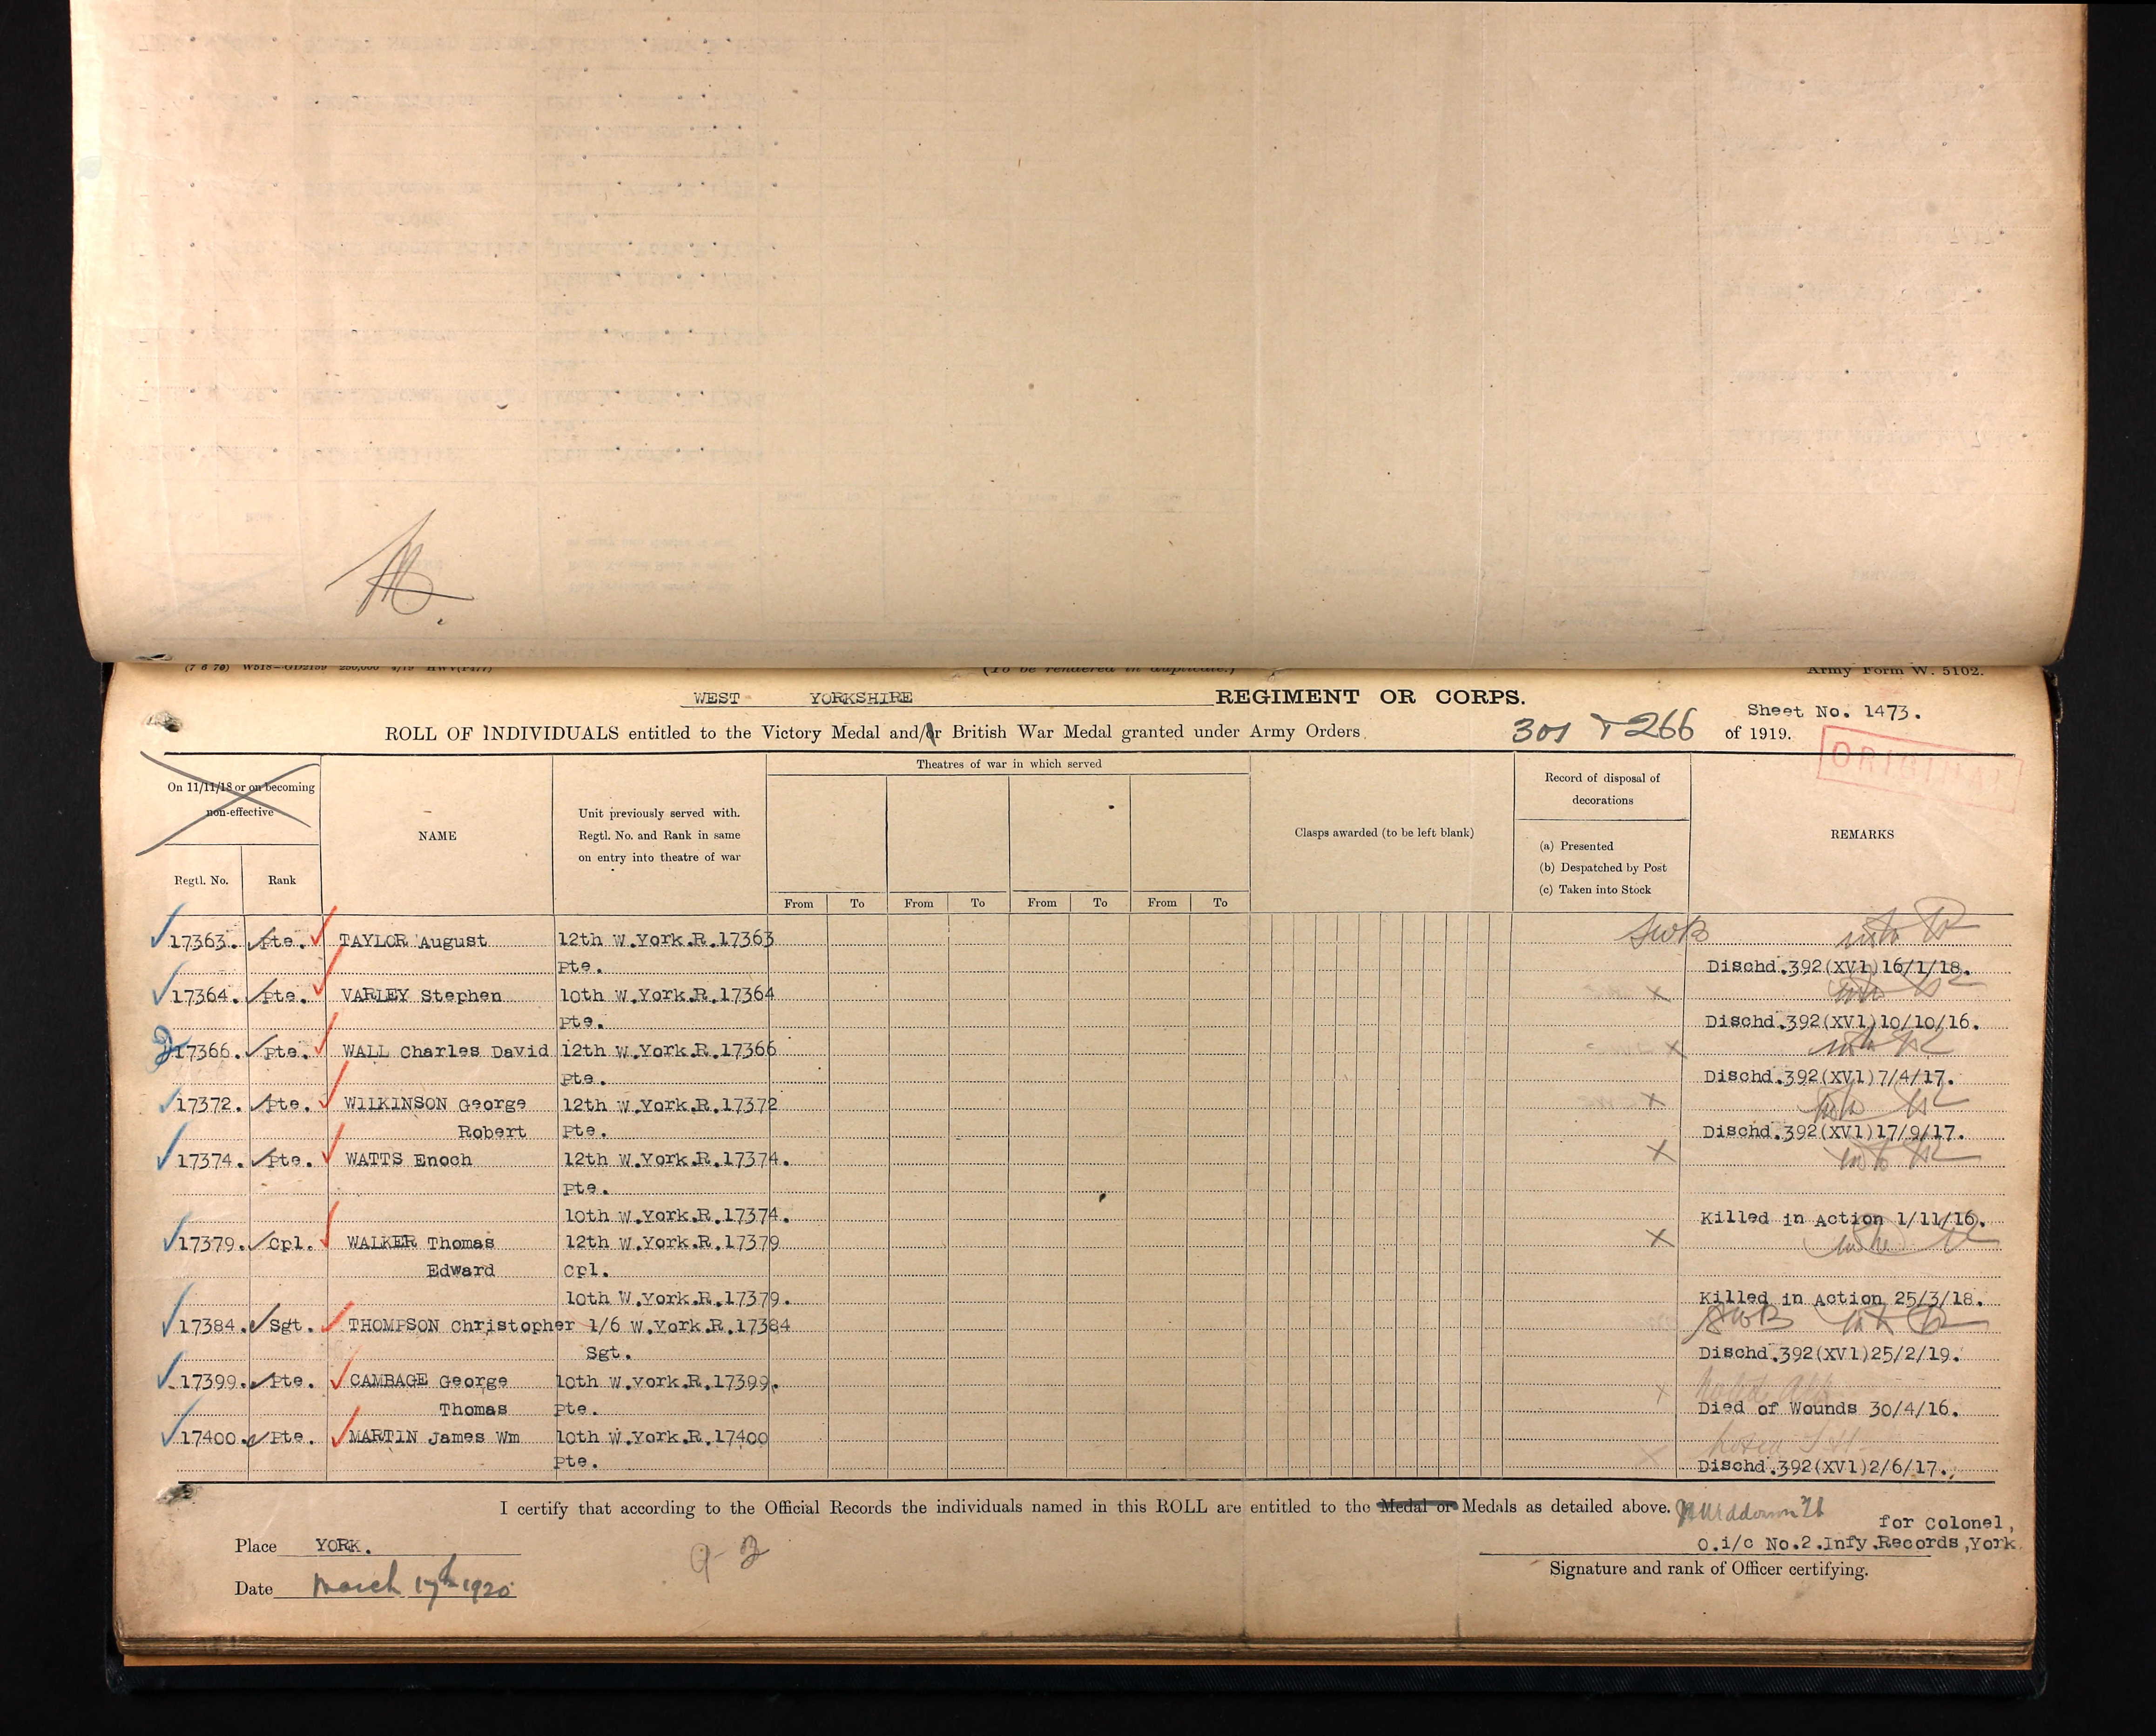 (7 6 70) W518—GD2159 250,000 4/19 HWV(P477)
(To be rendered in duplicate.)
Army Form W. 5102.
WEST YORKSHIRE REGIMENT OR CORPS.
Sheet No. 1473.
ROLL OF INDIVIDUALS entitled to the Victory Medal and/or British War Medal granted under Army Orders 301 + 266 of 1919.
ORIGINAL
On 11/11/18 or on becoming
non-effective
Regtl. No.
Rank
NAME
Unit previously served with.
Regtl. No. and Rank in same
on entry into theatre of war
Theatres of war in which served
From To From To From To From To
Clasps awarded (to be left blank)
Record of disposal of
decorations
(a) Presented
(b) Despatched by Post
(c) Taken into Stock
REMARKS
17363. Pte. TAYLOR August 12th W.York.R.17363 SWB
Pte. Dischd.392(XVl)16/1/18.
17364. Pte. VARLEY Stephen 10th W.York.R.17364 X
Pte. Dischd.392(XVl)10/10/16.
17366. Pte. WALL Charles David 12th W.York.R.17366 X
Pte. Dischd.392(XVl)7/4/17.
17372. Pte. WILKINSON George 12th W.York.R.17372 X
Robert Pte. Dischd.392(XVl)17/9/17.
17374. Pte. WATTS Enoch 12th W.York.R.17374. X
Pte.
10th W.York.R.17374. Killed in Action 1/11/16.
17379. Cpl. WALKER Thomas 12th W.York.R.17379 X
Edward Cpl.
10th W.York.R.17379. Killed in Action 25/3/18.
17384. Sgt. THOMPSON Christopher 1/6 W.York.R.17384 SWB
Sgt. Dischd.392(XVl)25/2/19.
17399. Pte. CAMBAGE George 10th W.York.R.17399. X
Thomas Pte. Died of Wounds 30/4/16.
17400. Pte. MARTIN James Wm 10th W.York.R.17400 X
Pte. Dischd.392(XVl)2/6/17.
I certify that according to the Official Records the individuals named in this ROLL are entitled to the Medal or Medals as detailed above.
for Colonel,
O.i/c No.2.Infy.Records,York
Signature and rank of Officer certifying.
Place YORK.
Date March 17th 1920